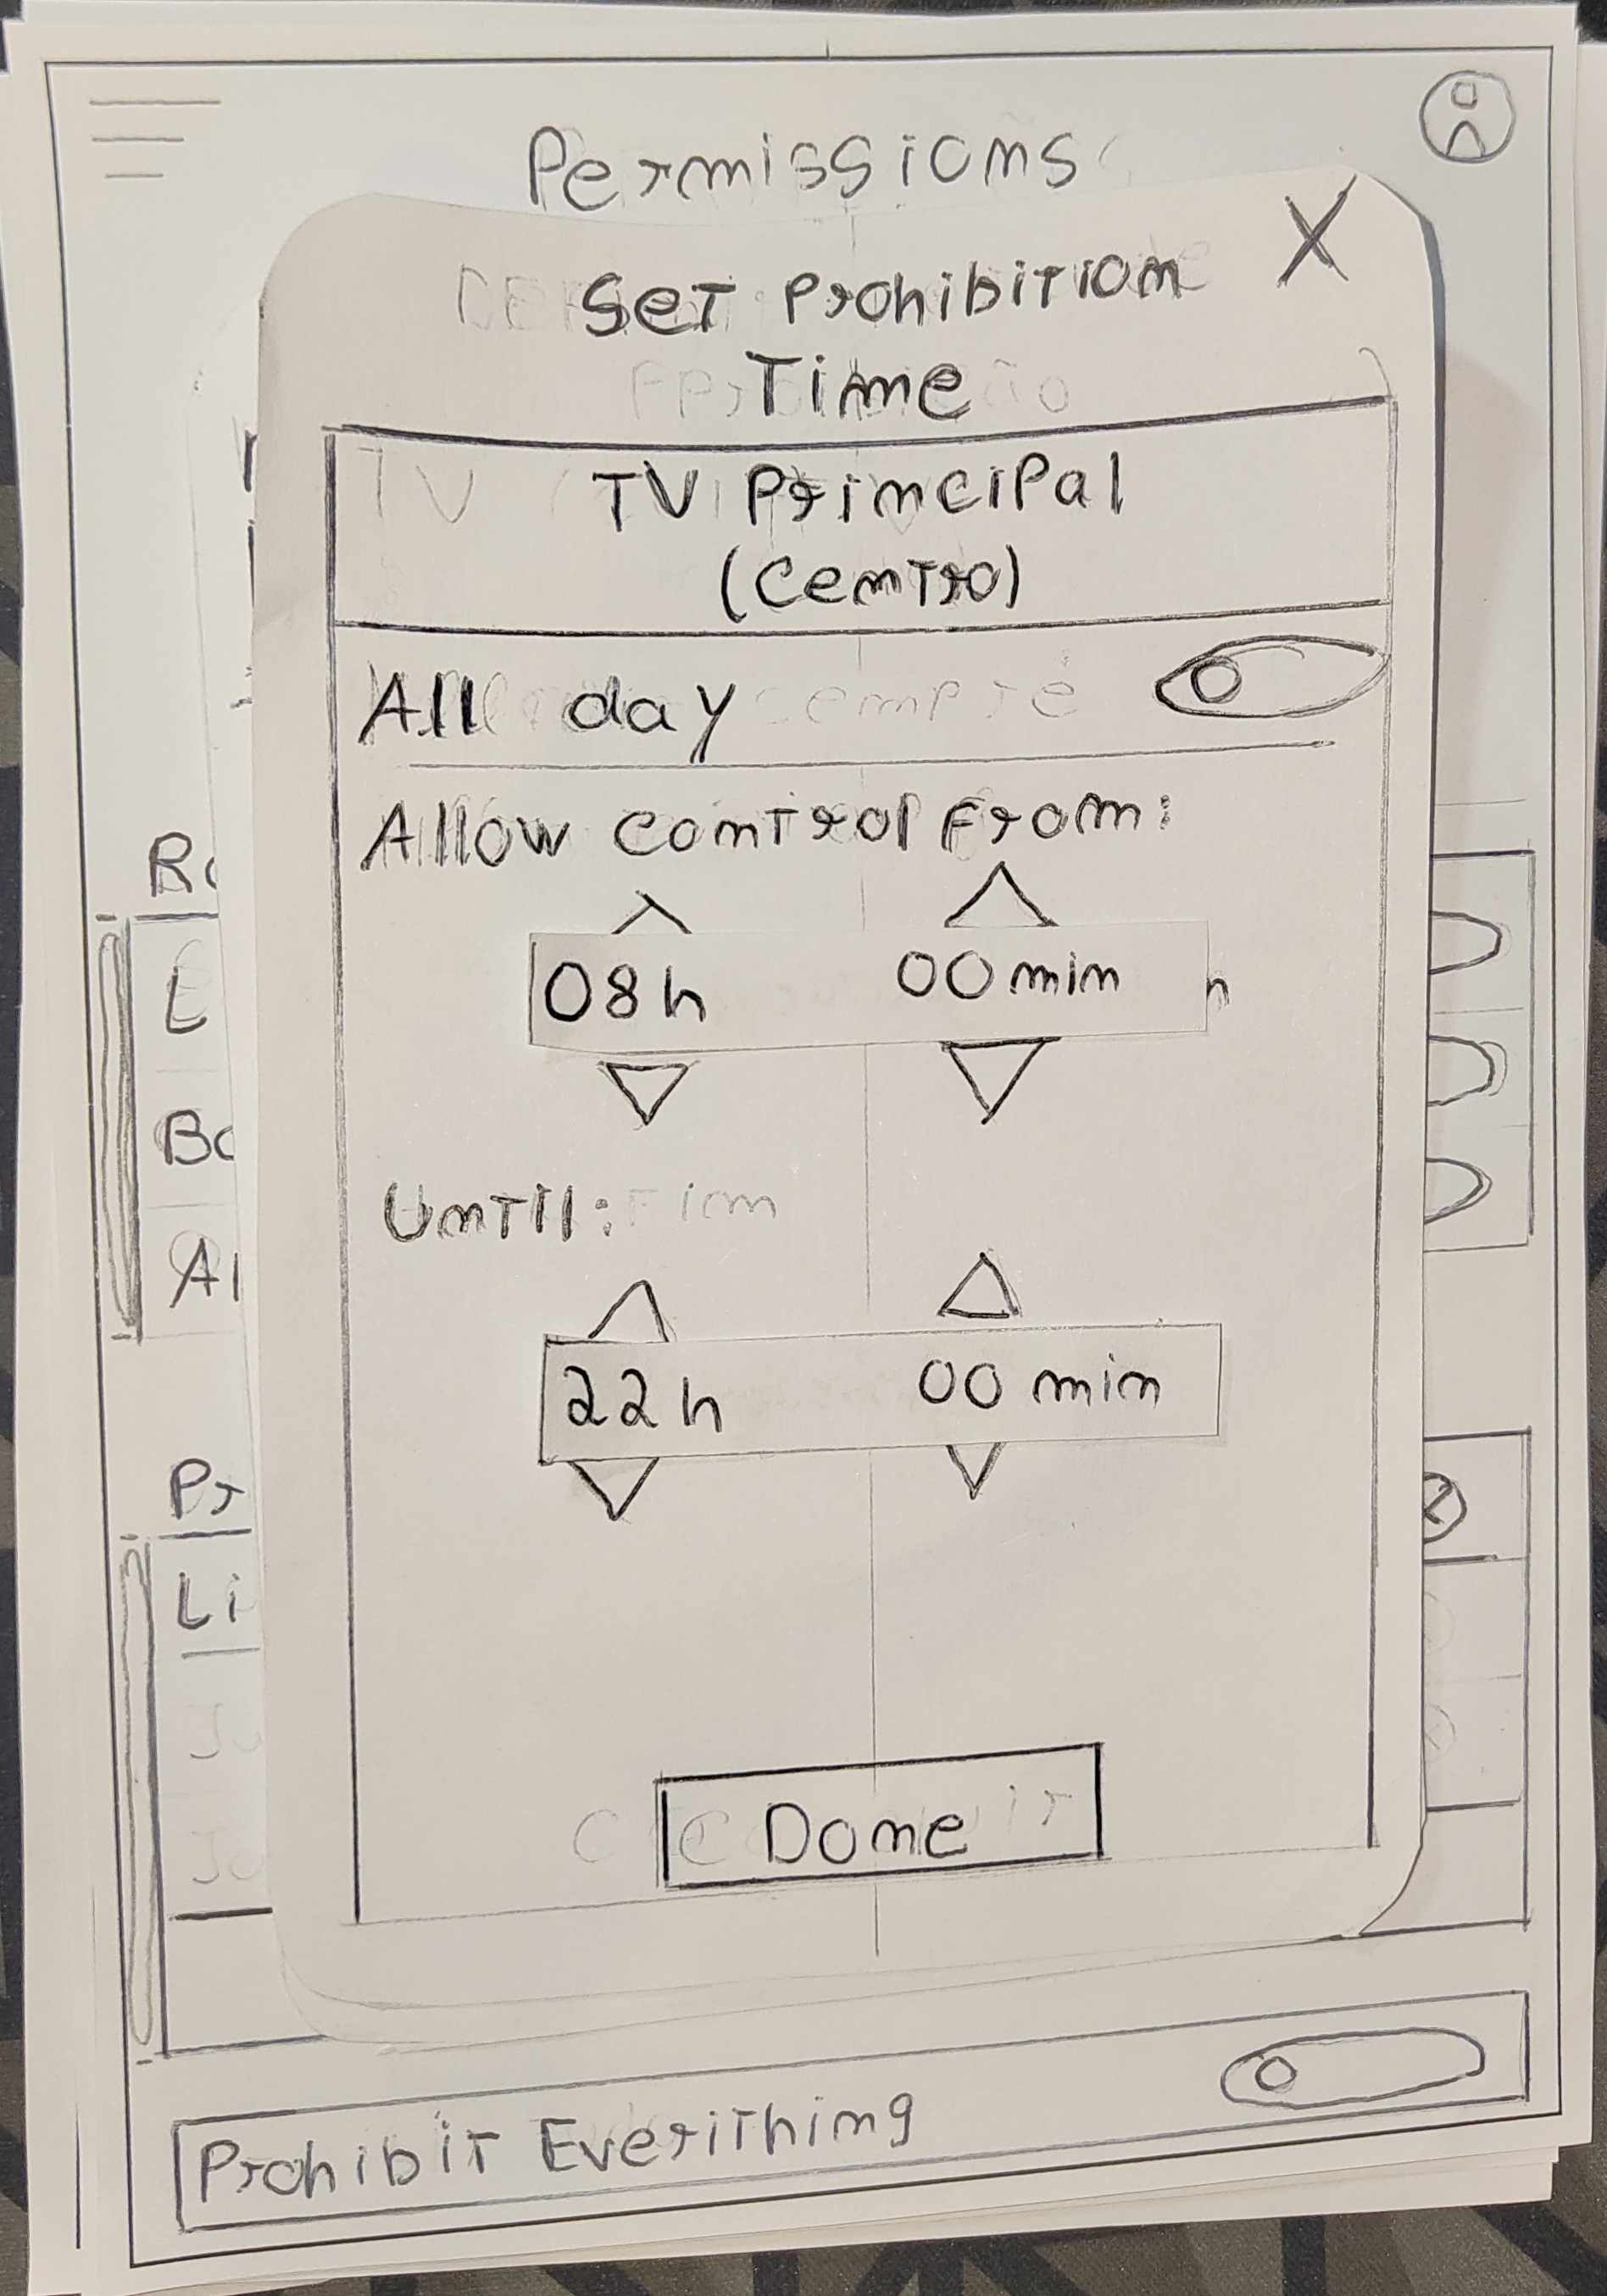 Permissions
Set Prohibition
Time
TV Principal
(Centro)
All day
Allow control From:
08h 00min
Until:
22h 00 min
Done
Prohibit Everithing